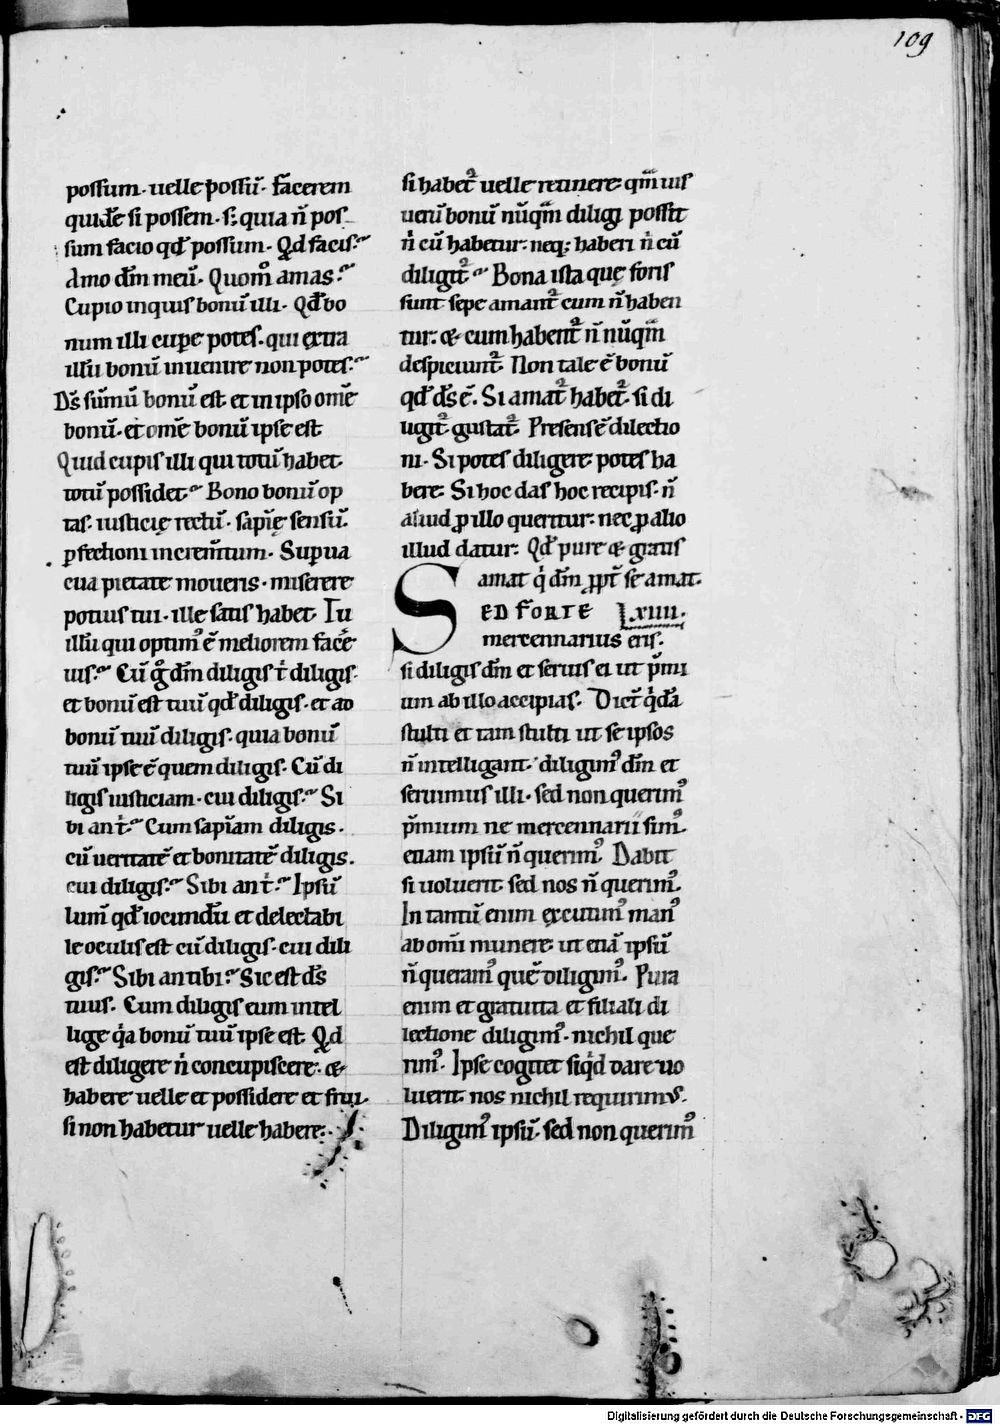 109
possum · uelle possū · facerem
quidē si possem · s; quia n̄ pos
sum facio qd̄ possum · Qd facis?
Amo dm̄ meū · Quom̊ amas?
Cupio inquis bonū illi · Qd̄ bo
num illi cupe potes · qui extra
illū bonū inuenire non potes?
Ds̄ sūmū bonū est et in ipso om̄e
bonū · et om̄e bonū ipse est
Quid cupis illi qui totū habet
totū possidet? Bono bonū op
tas · iusticię rectū · sapīę sensū
pfectioni increm̄tum · Supua
cua pietate moueris · miserere
potius tui · ille satis habet Tu
illū qui optim᾽ ē meliorem facē
uis? Cū g̊ dm̄ diligis t̄ diligis
et bonū est tuū qd̄ diligis · et ad
bonū tuū diligis · quia bonū
tuū ipse ē quem diligis · Cū di
ligis iusticiam · cui diligis? Si
bi an t̄? Cum sapīam diligis ·
cū ueritatē et bonitatē diligis ·
cui diligis? Sibi an t̄? Ipsū
lum̄ qd̄ iocundū et delectabi
le oculis est cū diligis · cui dili
gis? Sibi an tibi? Sic est ds̄
tuus · Cum diligis eum intel
lige qa bonū tuū ipse est Qd
est diligere n̄ concupiscere · &
habere uelle et possidere et frui
si non habetur uelle habere ·
si habet᾽ uelle retinere qm̄ uis
uerū bonū nūqm̄ diligi possit
n̄ cū habetur · neq; haberi n̄ cū
diligit᾽ Bona ista quę foris
sunt sepe amant᾽ cum n̄ haben
tur · & cum habent᾽ n̄ nūqm̄
despiciunt᾽ Non tale ē bonū
qd̄ ds̄ ē · Si amat᾽ habet᾽ si di
ligit᾽ gustat᾽ Presens ē dilectio
ni · Si potes diligere potes ha
bere · Si hoc das hoc recipis · n̄
aliud p illo queritur · nec p alio
illud datur · Qd̄ pure & gratis
amat q̇ dm̄ ppt᾽ se amat ·
SED FORTE LXIIII.
mercennarius eris ·
si diligis dm̄ et seruis ei ut p̄mi
um ab illo accipias · Dict᾽ qdā
stulti et tam stulti ut se ipsos
n̄ intelligant · diligim᾽ dm̄ et
seruimus illi · sed non querim᾽
p̄mium ne mercennarii sim᾽
etiam ipsū n̄ querim᾽ Dabit
si uoluerit sed nos n̄ querim᾽
In tantū enim excutim᾽ man᾽
ab om̄i munere ut etiā ipsū
n̄ queram᾽ quē diligim᾽ · Pura
enim et gratuita et filiali di
lectione diligim᾽ · nichil que
rim᾽ · Ipse cogitet siqd dare uo
luerit nos nichil requirimus ·
Diligim᾽ ipsū · sed non querim᾽
Digitalisierung gefördert durch die Deutsche Forschungsgemeinschaft - DFG